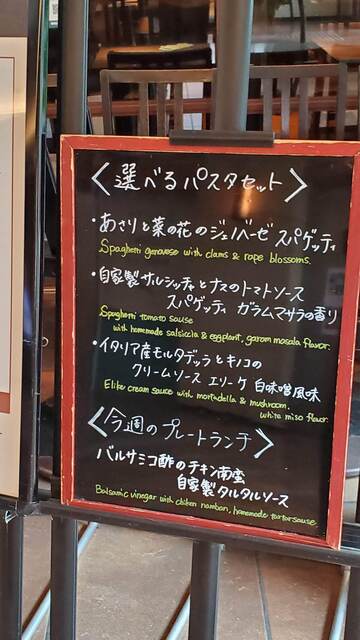 <選べるパスタセット>
・あさりと菜の花のジェノベーゼ スパゲッティ
Spaghetti genovese with clams & rape blossoms.
・自家製サルシッチャとナスのトマトソース
スパゲッティ ガラムマサラの香り
Spaghetti tomato sause
with homemade salsiccia & eggplant, garam masala flavor.
・イタリア産モルタデッラとキノコの
クリームソース エリーケ 白味噌風味
Elike cream sauce with mortadella & mushroom.
white miso flavor.
<今週のプレートランチ>
バルサミコ酢のチキン南蛮
自家製タルタルソース
Balsamic vinegar with chiken nanban, homemade tartarsause